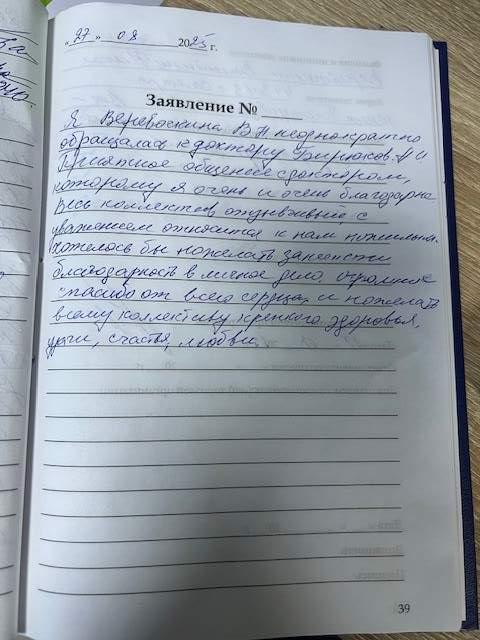 "27" 08 2025 г.
Заявление №
Я Веревоскина В Н неоднократно
обращалась к доктору Бирюков. А И
Приятное общение с доктором,
которому я очень и очень благодарна
Весь коллектив отзывчивый, с
уважением относится к нам пожилым.
хотелось бы пожелать занести
благодарность в личное дело. огромное
спасибо от всего сердца, и пожелать
всему коллективу крепкого здоровья,
удачи, счастья, любви.
39